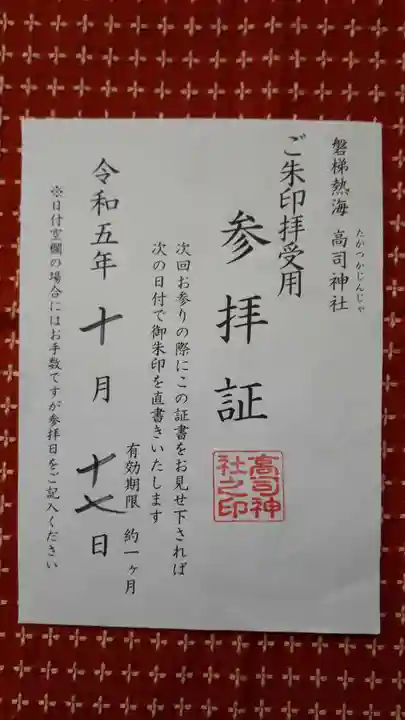 磐梯熱海 高司神社
たかつかじんじゃ
ご朱印拝受用
参拝証
高司神
社之印
次回お参りの際にこの証書をお見せ下されば
次の日付で御朱印を直書きいたします
有効期限 約一ヶ月
令和五年 十 月 十七 日
※日付空欄の場合にはお手数ですが参拝日をご記入ください